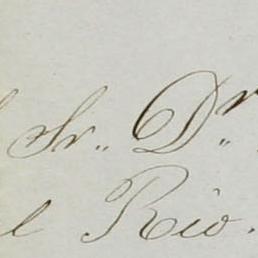 l Sr.. D.r
l Rio.